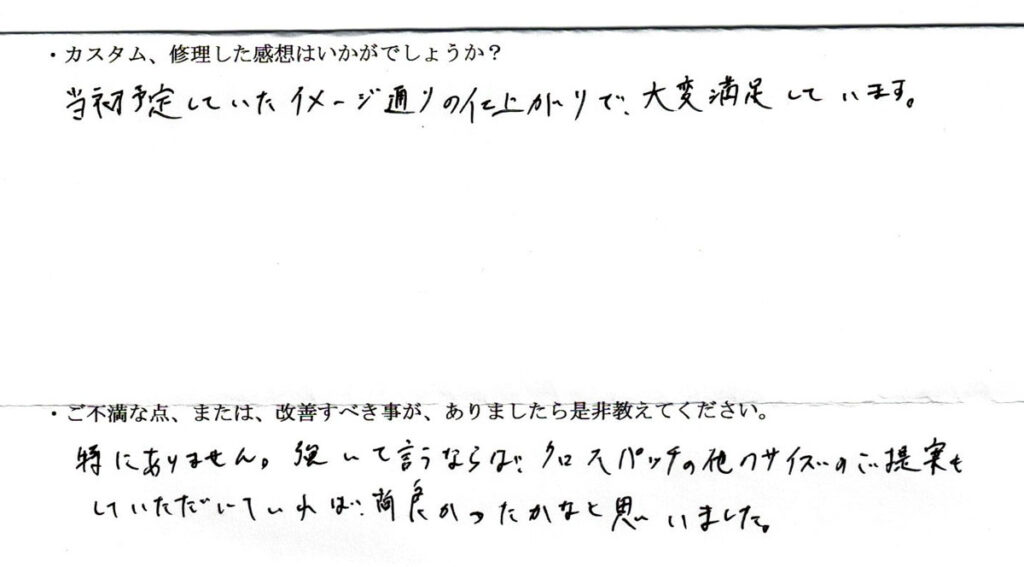 ・カスタム、修理した感想はいかがでしょうか？
当初予定していたイメージ通りの仕上がりで、大変満足しています。
・ご不満な点、または、改善すべき事が、ありましたら是非教えてください。
特にありません。強いて言うならば、クロスパッチの他のサイズのご提案も
していただいていれば、尚良かったかなと思いました。